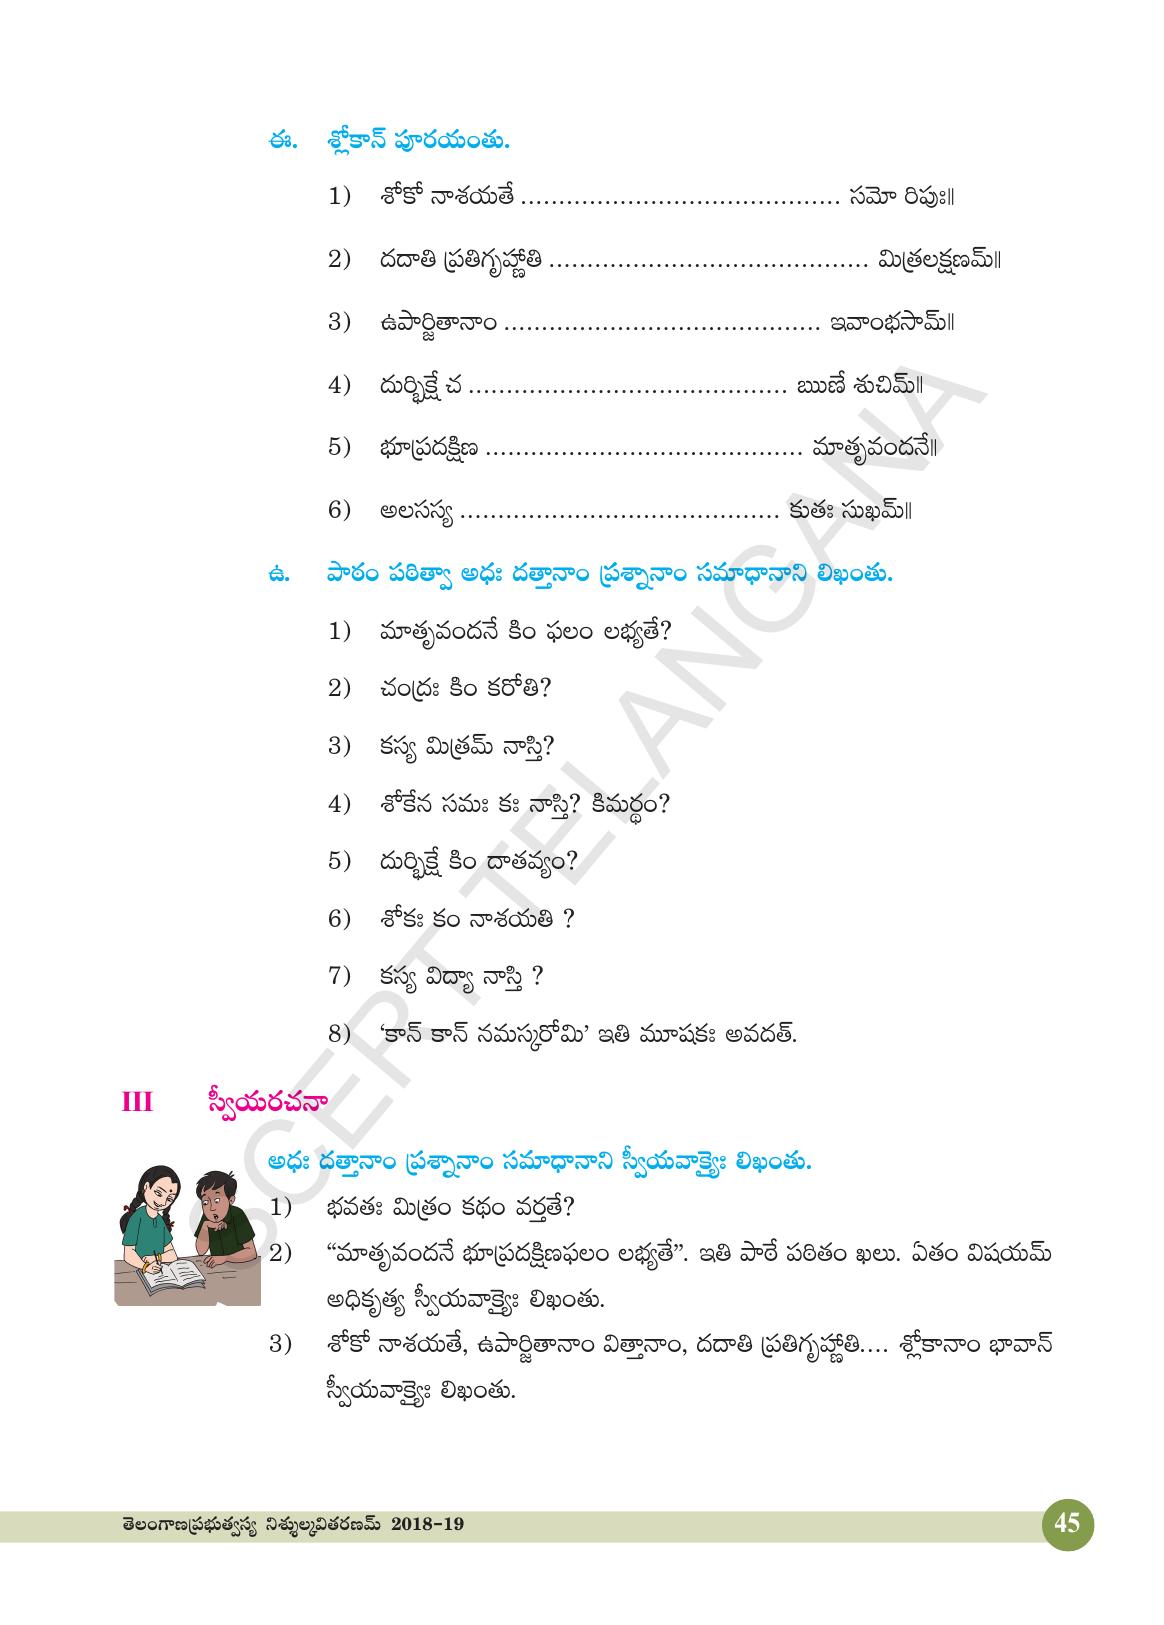 ఈ. శ్లోకాన్ పూరయంతు.
1) శోకో నాశయతే .......................................... సమో రిపుః॥
2) దదాతి ప్రతిగృహ్ణాతి .......................................... మిత్రలక్షణమ్॥
3) ఉపార్జితానాం .......................................... ఇవాంభసామ్॥
4) దుర్భిక్షే చ .......................................... ఋణే శుచిమ్॥
5) భూప్రదక్షిణ .......................................... మాతృవందనే॥
6) అలసస్య .......................................... కుతః సుఖమ్॥
ఉ. పాఠం పఠిత్వా అధః దత్తానాం ప్రశ్నానాం సమాధానాని లిఖంతు.
1) మాతృవందనే కిం ఫలం లభ్యతే?
2) చంద్రః కిం కరోతి?
3) కస్య మిత్రమ్ నాస్తి?
4) శోకేన సమః కః నాస్తి? కిమర్థం?
5) దుర్భిక్షే కిం దాతవ్యం?
6) శోకః కం నాశయతి ?
7) కస్య విద్యా నాస్తి ?
8) ‘కాన్ కాన్ నమస్కరోమి’ ఇతి మూషకః అవదత్.
III స్వీయరచనా
అధః దత్తానాం ప్రశ్నానాం సమాధానాని స్వీయవాక్యైః లిఖంతు.
1) భవతః మిత్రం కథం వర్తతే?
2) “మాతృవందనే భూప్రదక్షిణఫలం లభ్యతే”. ఇతి పాఠే పఠితం ఖలు. ఏతం విషయమ్
అధికృత్య స్వీయవాక్యైః లిఖంతు.
3) శోకో నాశయతే, ఉపార్జితానాం విత్తానాం, దదాతి ప్రతిగృహ్ణాతి.... శ్లోకానాం భావాన్
స్వీయవాక్యైః లిఖంతు.
తెలంగాణప్రభుత్వస్య నిశ్శుల్కవితరణమ్ 2018-19
45
SCERT TELANGANA